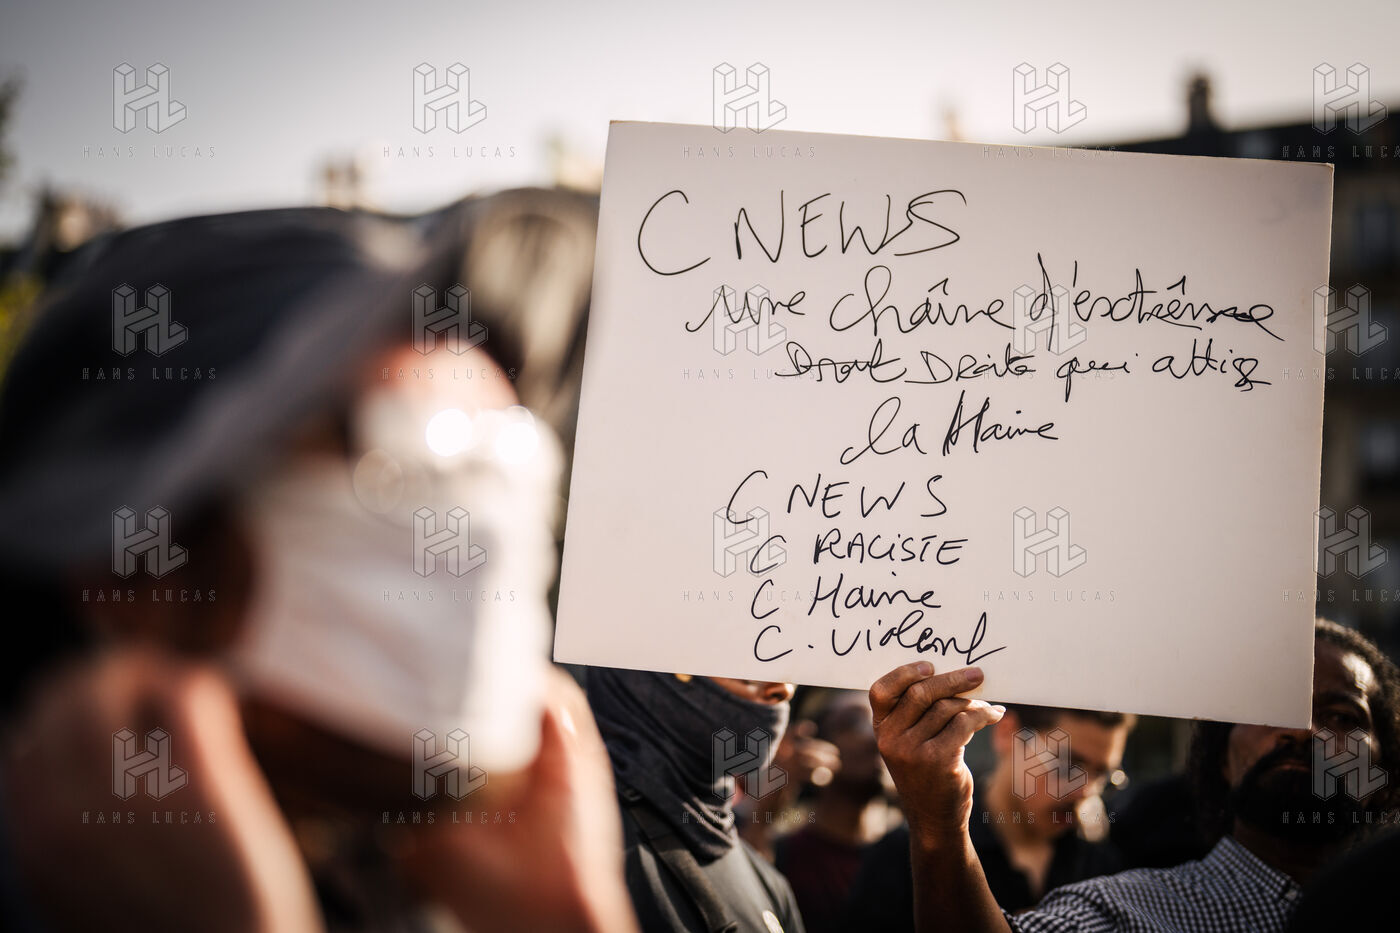 C NEWS
une chaîne d'extrême
Droite qui attise
la Haine
C NEWS
C RACiSTE
C Haine
C. violent
HL
HANS LUCAS